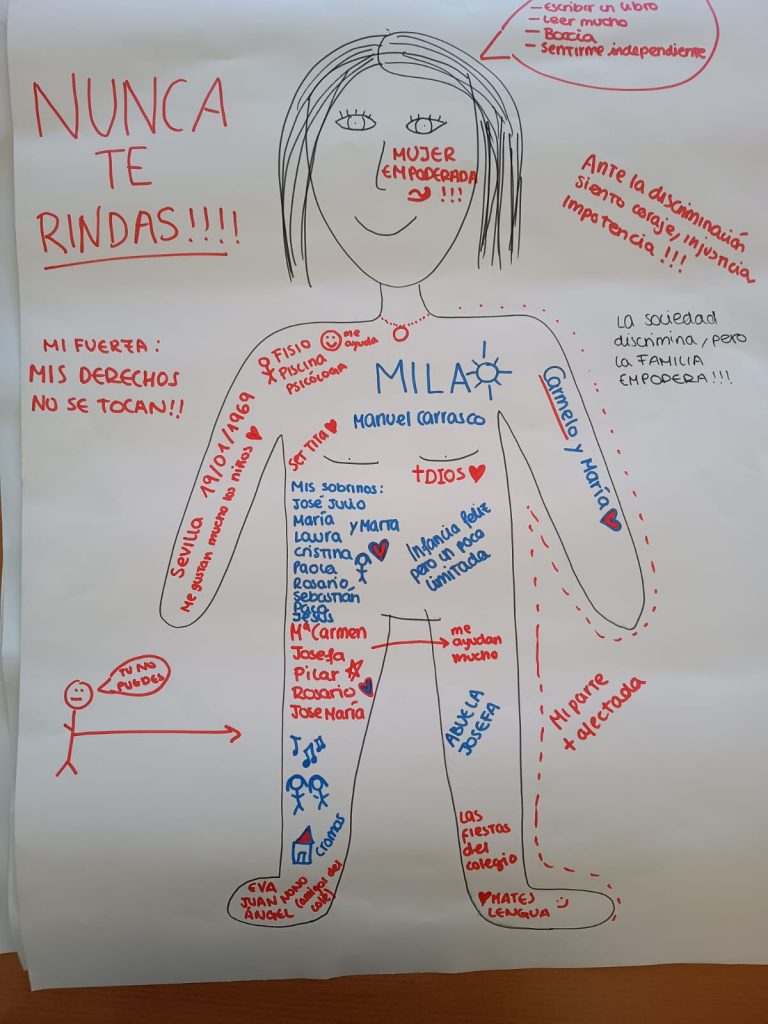 - Escribir un libro
- Leer mucho
- Boccia
- Sentirme independiente
NUNCA
TE
RINDAS!!!!
MUJER
EMPODERADA
!!!
Ante la discriminación
siento coraje, injusticia,
impotencia !!!
La sociedad
discrimina, pero
la FAMILIA
EMPODERA!!!
MI FUERZA:
MIS DERECHOS
NO SE TOCAN!!
FISIO
PISCINA
PSICÓLOGA
me
ayuda
MILA
Manuel Carrasco
Carmelo y María
Sevilla 19/01/1969
Me gustan mucho los niños
SER TITA
+DIOS
Mis sobrinos:
José Julio
María y Marta
Laura
Cristina
Paola
Rosario
Sebastián
Paco
Jesús
Infancia feliz
pero un poco
limitada
Mª Carmen
Josefa
Pilar
Rosario
Jose María
me
ayudan
mucho
TU NO
PUEDES
ABUELA
JOSEFA
Mi parte
+ afectada
cromos
Las
fiestas
del
colegio
EVA
JUAN NONO
ÁNGEL
(amigos del
cole)
MATES
LENGUA